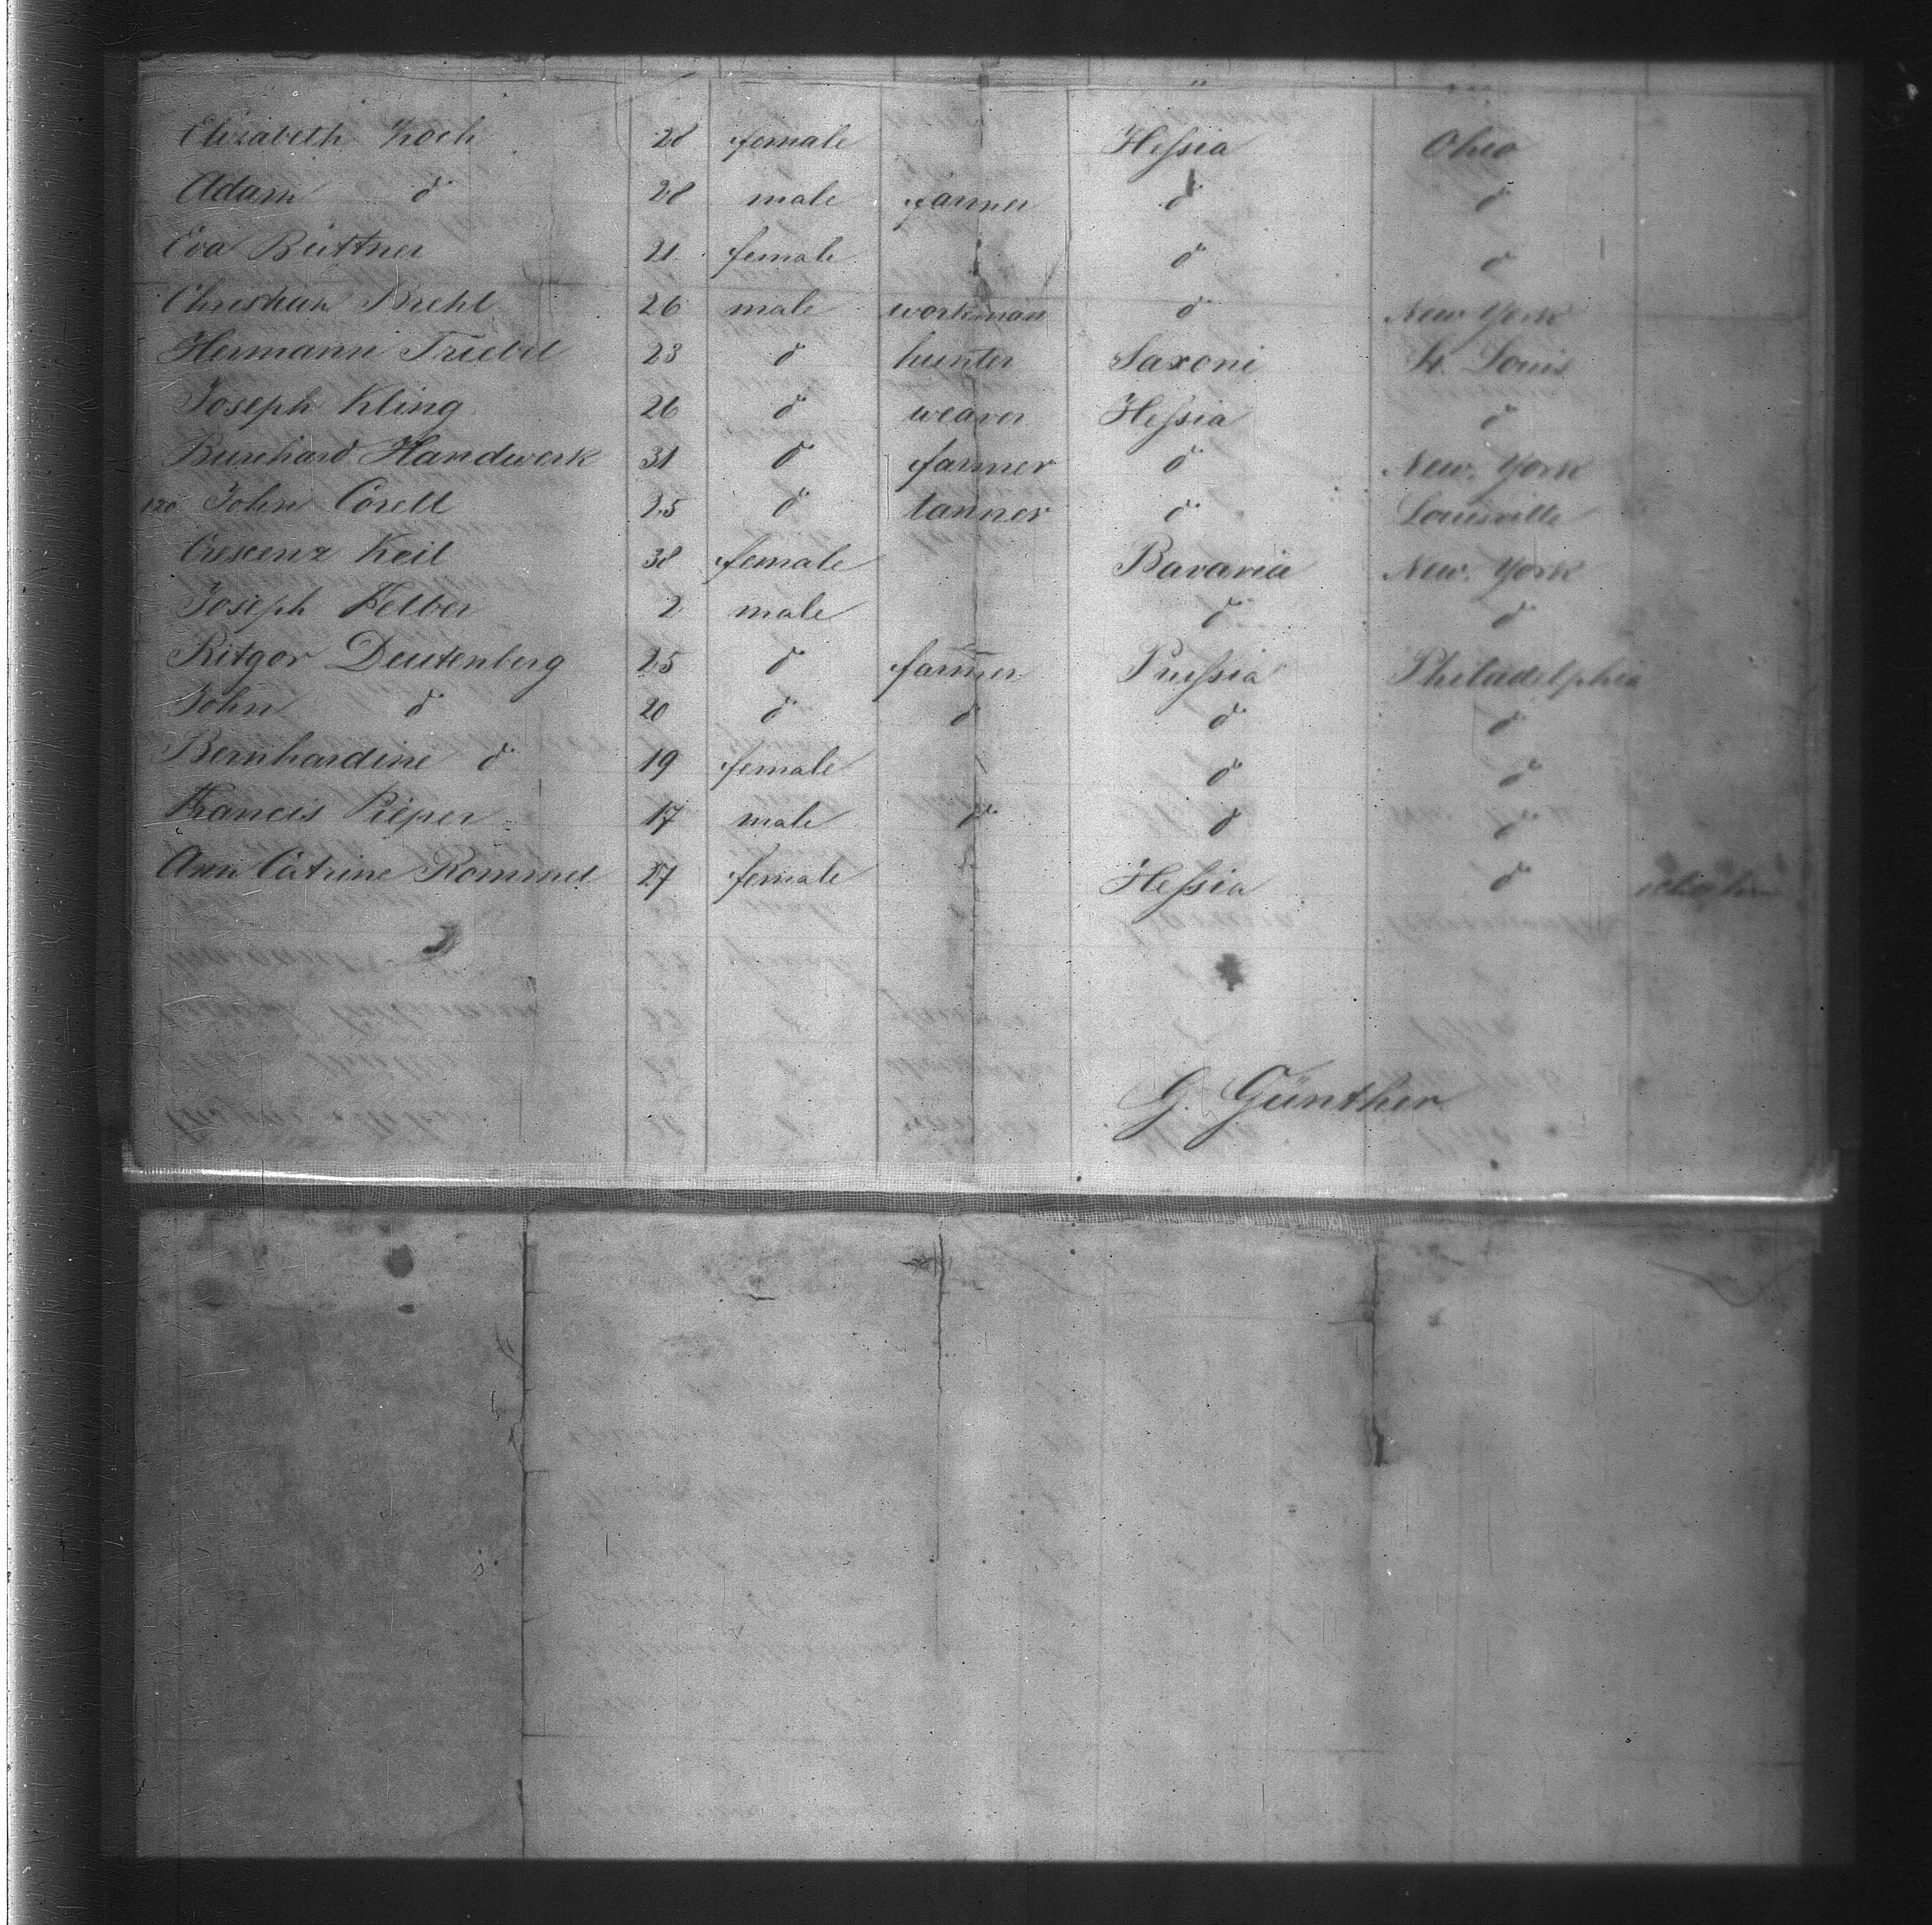 Elizabeth Koch 28 female Hessia Ohio
Adam d° 28 male farmer d° d°
Eva Büttner 21 female d° d°
Christian Diehl 26 male workman d° New York
Hermann Triebel 23 d° hunter Saxoni St. Louis
Joseph Kling 26 d° weaver Hessia d°
Burchard Handwerk 31 d° farmer d° New York
120 John Corell 25 d° tanner d° Louisville
Crescenz Keil 38 female Bavaria New York
Joseph Felber 2 male d° d°
Ritgor Deutenberg 25 d° farmer Prussia Philadelphia
John d° 20 d° d° d° d°
Bernhardine d° 19 female d° d°
Francis Pieper 17 male d° d° d°
Ann Catrine Rommel 27 female Hessia d°
G. Günther